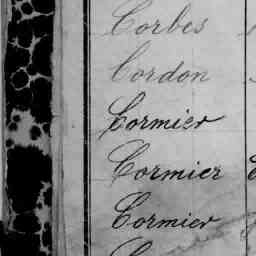 Corbes
Cordon
Cormier
Cormier
Cormier